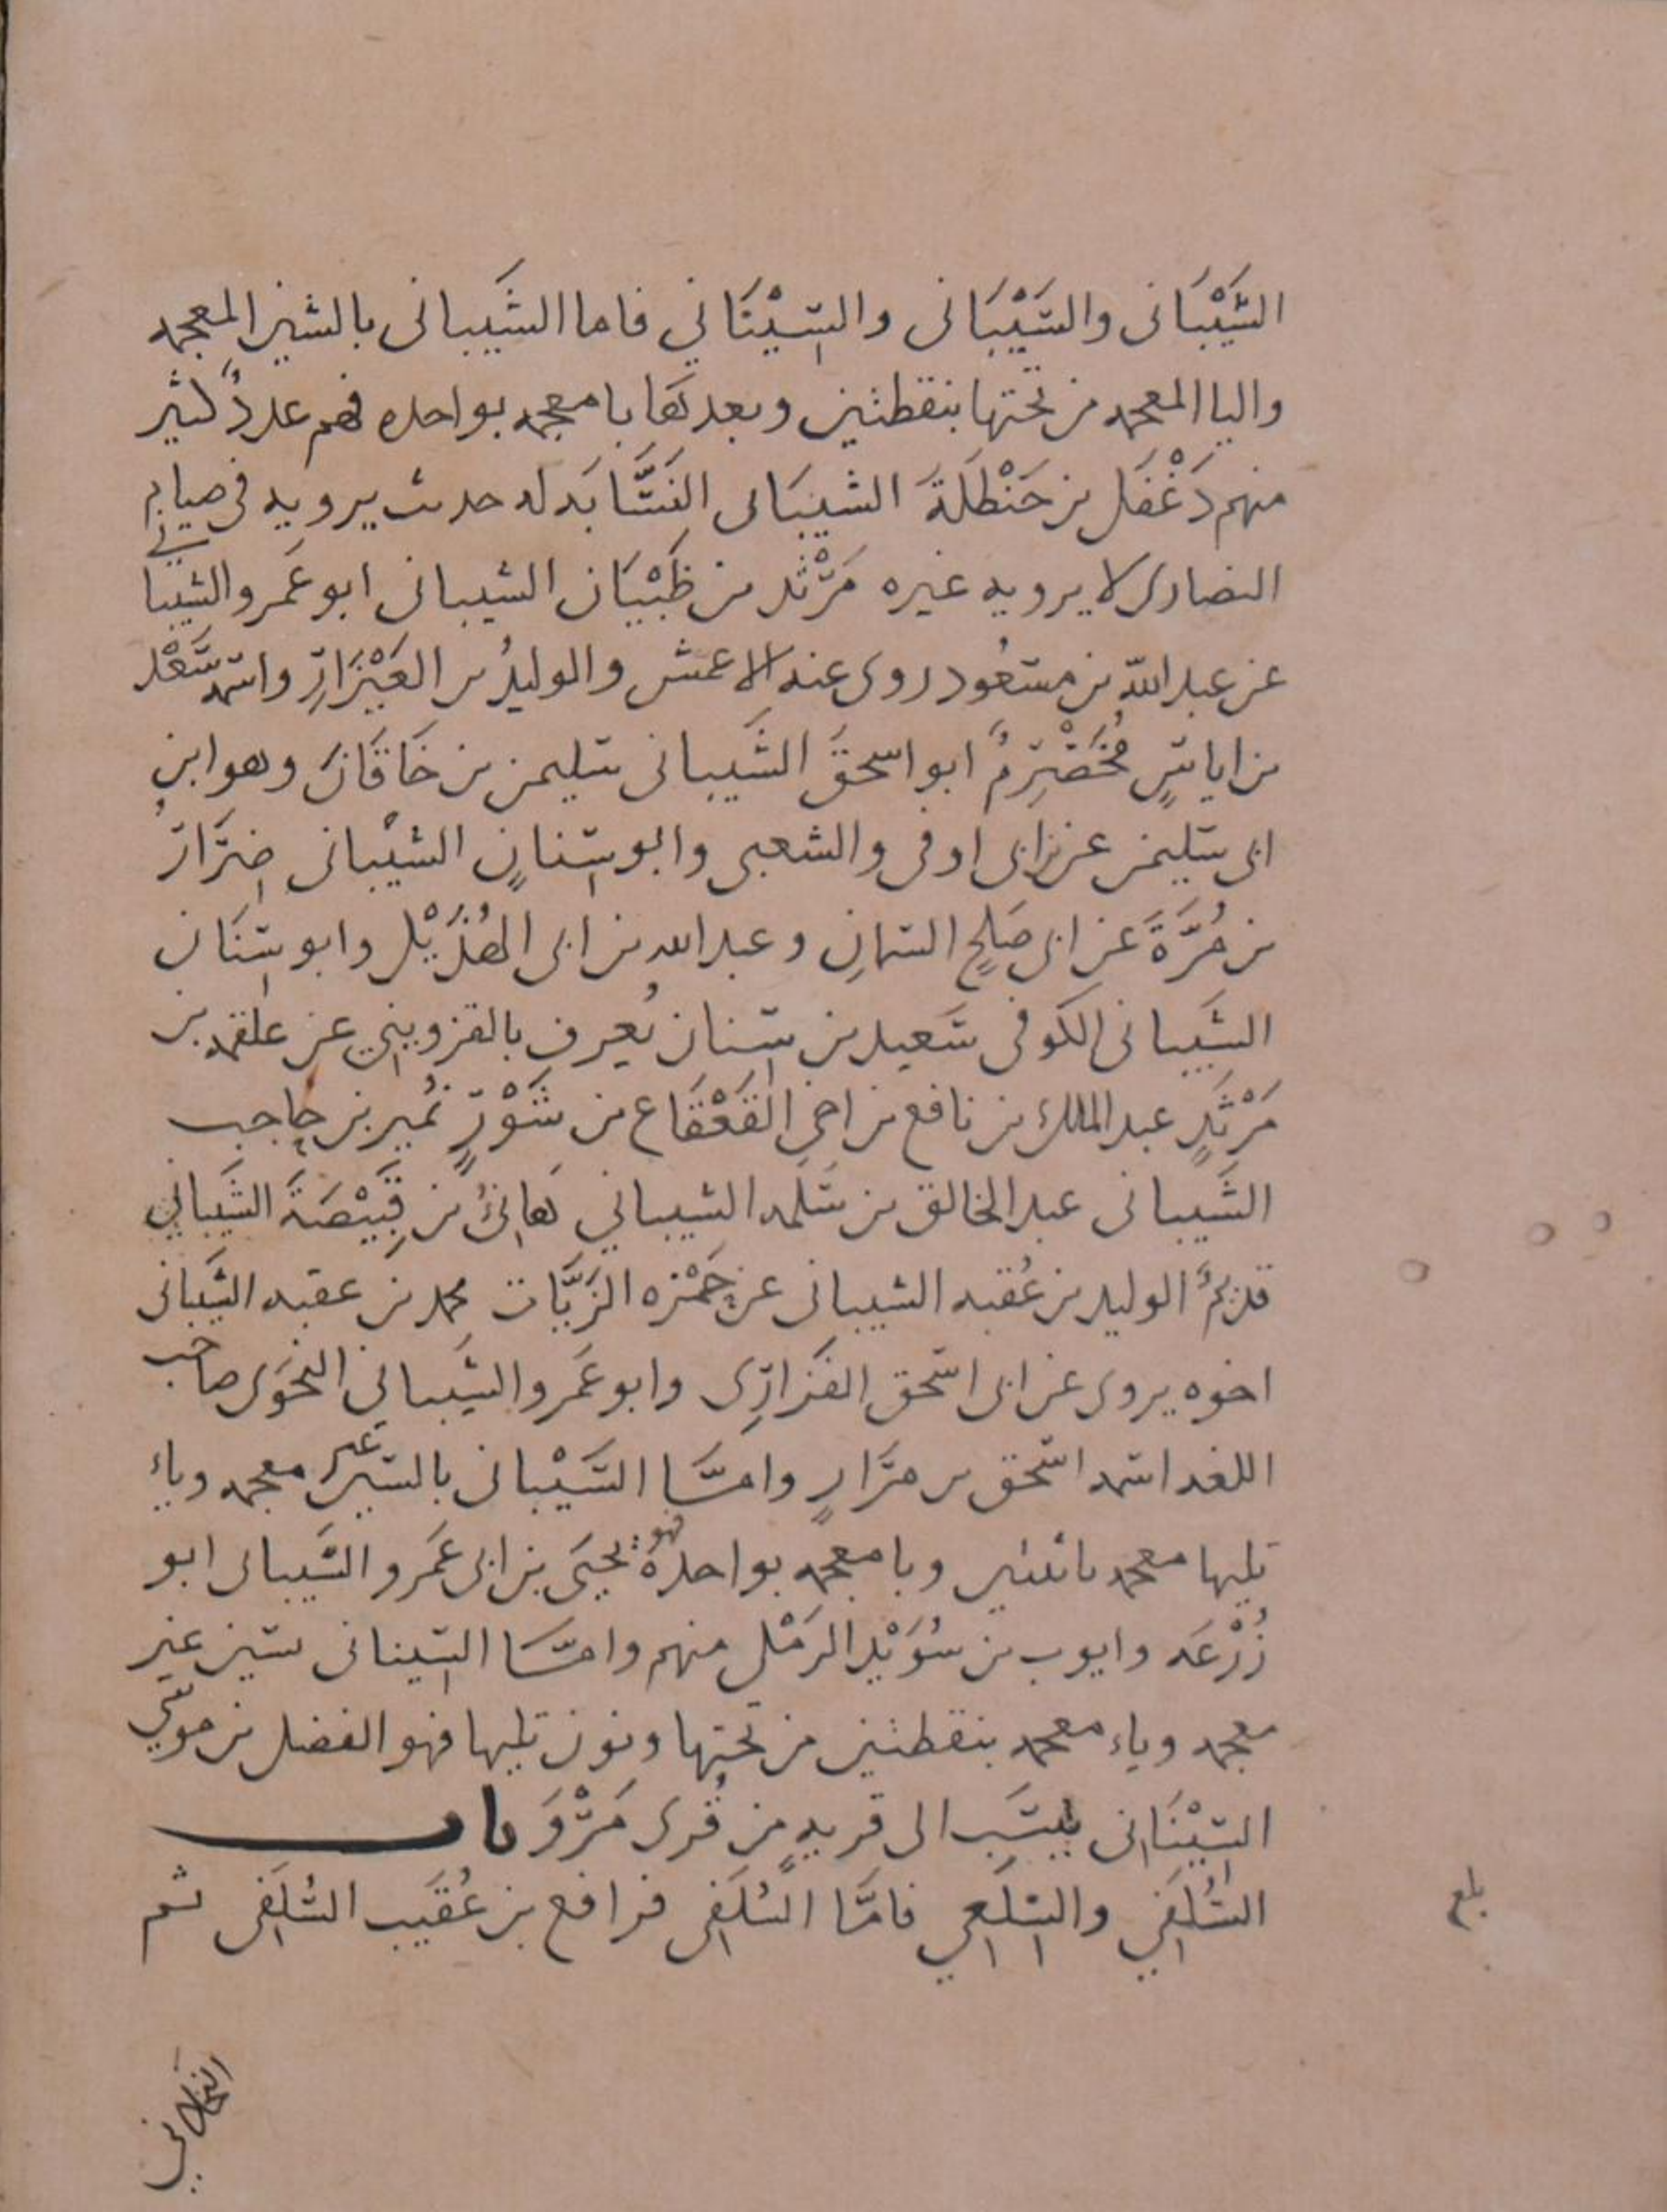 الشَّيْبَانى والسَّيْبَانى والسِّيْنَاني فاما الشَّيبانى بالشين المعجمه
واليا المعجمه من تحتها بنقطتين وبعدها با معجمه بواحده فهم عددٌ كثير
منهم دَغْفَل بن حَنْظَلَةَ الشيبَانى النَسَّابَه له حديث يرويه فى صيام
النصارى لا يرويه غيره مَرْثَد بن ظَبْيَان الشيبانى ابو عَمرو الشيبانى
عن عبد الله بن مسعُود روى عنه الاعمش والوليدُ بن العَيْزَارِ واسمه سَعْد
بن اياسٍ مُخَضْرِمٌ ابو اسحقَ الشَّيبانى سليمن بن خَاقَانَ وهو ابن
ابى سليمن عن ابن ابى اوفى والشعبى وابو سِنانٍ الشيْبانى ضِرَارُ
بن مُرَّةَ عن ابى صَلحٍ السمانِ وعبد الله بن ابى الهُذَيْل وابو سِنَان
الشَيبانى الكوفى سَعيد بن سِنان يُعرف بالقزويني عن علقمه بن
مَرْثَدٍ عبد الملك بن نافع بن اخى القَعْقَاع بن شَوْرٍ نُمير بن حاجب
الشَيبانى عبد الخالق بن سَلمه الشيباني هَانِئُ بن قَبِيْصَةَ الشَيباني
قديمٌ الوليد بن عُقبه الشيبانى عن حَمْزه الزَيَّات محمد بن عقبه الشَيبانى
اخوه يروى عن ابى اسحق الفَزارِى وابو عَمرو الشَيباني النحَوى صاحب
اللغه اسمه اسحق بن مرَارٍ وامَّا السَّيْبانى بالسين غير معجمه وياء
تليها معجمه باثنتين وبا معجمه بواحدةُ فهو يحيَى بن ابى عَمرو السَّيبانى ابو
زُرْعَه وايوب بن سُوَيْد الرمَلى منهم وامَّا السِّينانى بسين غير
معجمه وياء معجمه بنقطتين من تحتها ونون تليها فهو الفضل بن موسى
السِّيْنَانى يُنسَب الى قريهٍ من قُرى مَرْوَ باب
السُّلَفي والسِّلَعي فامَّا السُّلَفى فرافع بن عُقَيب السُّلَفى ثم
بلغ